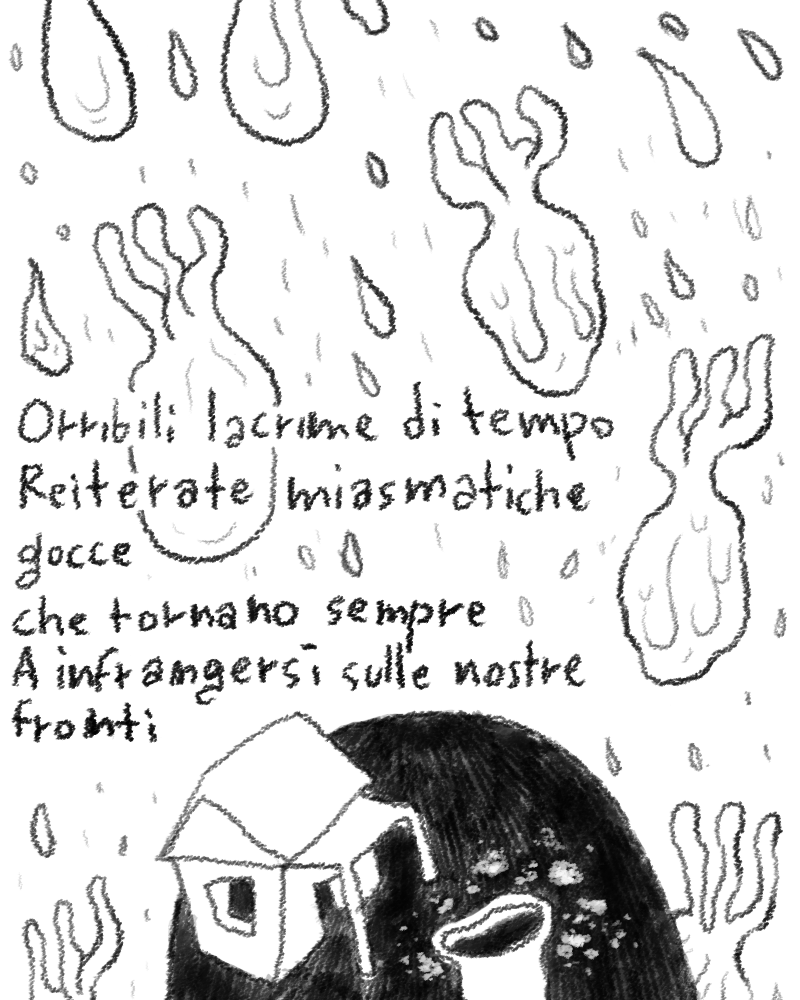 Orribili lacrime di tempo
Reiterate miasmatiche
gocce
che tornano sempre
A infrangersi sulle nostre
fronti